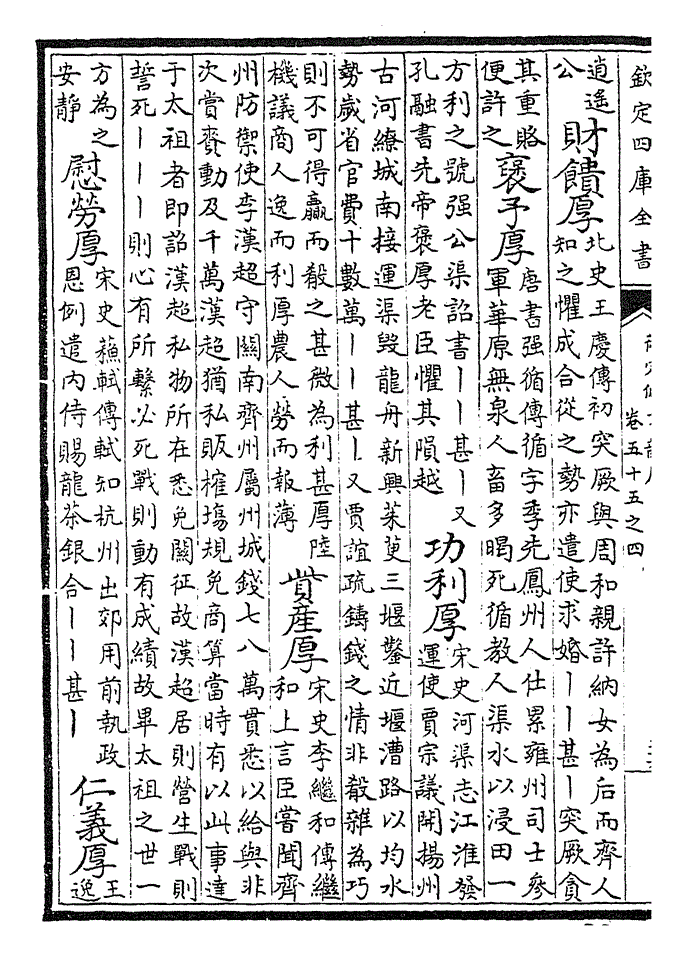 欽定四庫全書
卷五十五之四
逍遙
公
財饋厚
北史王慶傳初突厥與周和親許納女為后而齊人
知之懼成合從之勢亦遣使求婚丨丨甚丨突厥貪
其重賂
便許之
褒予厚
唐書强循傳循字季先鳳州人仕累雍州司士參
軍華原無泉人畜多暍死循教人渠水以浸田一
方利之號强公渠詔書丨丨甚丨又
孔融書先帝褒厚老臣懼其隕越
功利厚
宋史河渠志江淮發
運使賈宗議開揚州
古河繚城南接運渠毀龍舟新興茱萸三堰鑿近堰漕路以均水
勢歲省官費十數萬丨丨甚丨又賈誼疏鑄錢之情非殽雜為巧
則不可得贏而殽之甚微為利甚厚陸
機議商人逸而利厚農人勞而報薄
貲產厚
宋史李繼和傳繼
和上言臣嘗聞齊
州防禦使李漢超守關南齊州屬州城錢七八萬貫悉以給與非
次賞賚動及千萬漢超猶私販榷塲規免商算當時有以此事達
于太祖者即詔漢超私物所在悉免關征故漢超居則營生戰則
誓死丨丨丨則心有所繫必死戰則動有成績故畢太祖之世一
方為之
安靜
慰勞厚
宋史蘇軾傳軾知杭州出郊用前執政
恩例遣内侍賜龍茶銀合丨丨甚丨
仁義厚
王
逸